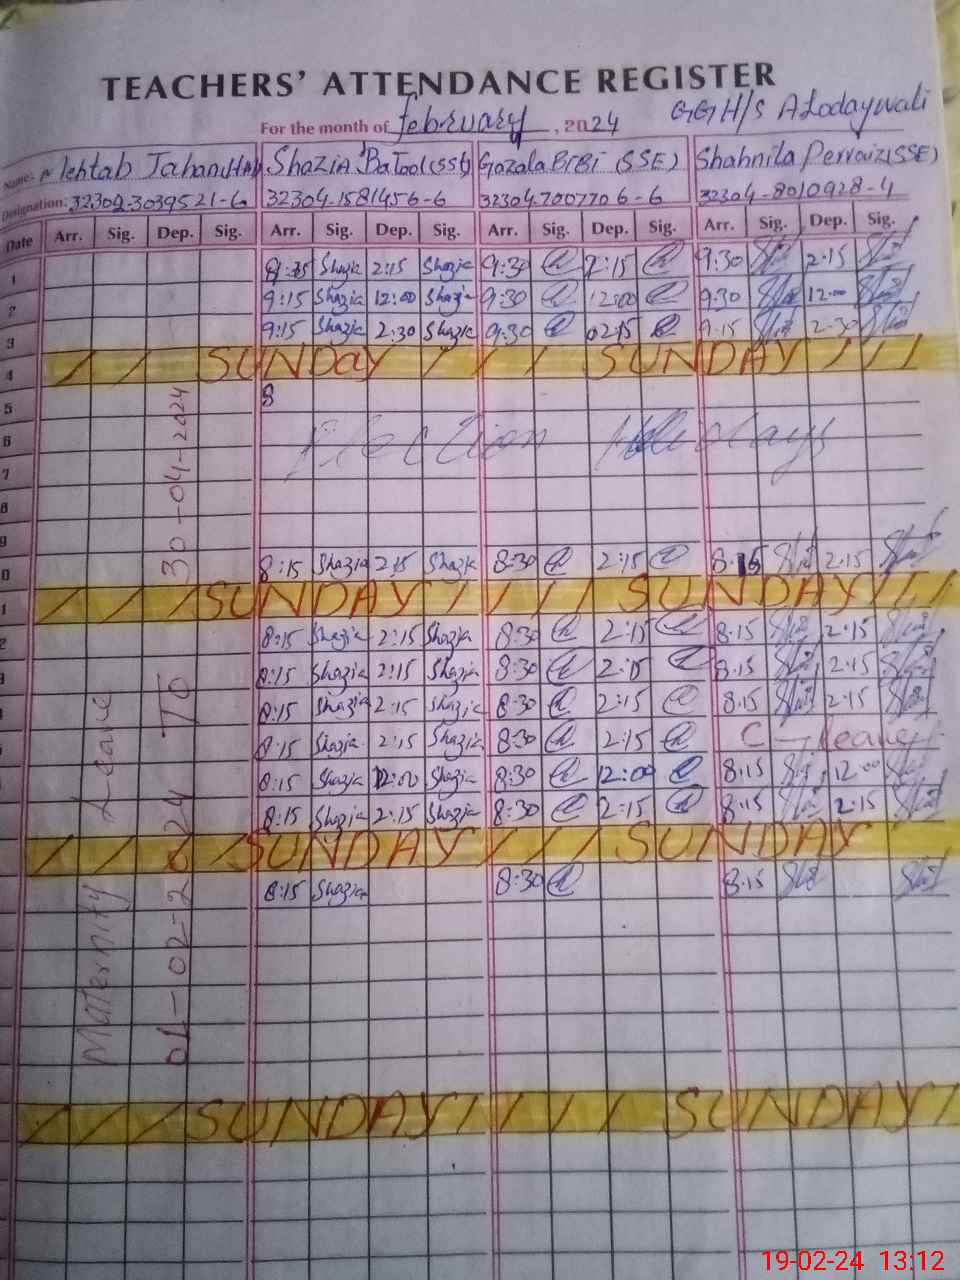 TEACHERS' ATTENDANCE REGISTER
For the month of february, 2024 GGH/s Alodaywali
Name:- Mehtab Jahan Shazia Batool (SST) Gozala BIBI (SSE) Shahnila Pervaiz (SSE)
Designation: 32302-3039521-6 32304-1581456-6 32304-7007706-6 32304-8010928-4
Date Arr. Sig. Dep. Sig. Arr. Sig. Dep. Sig. Arr. Sig. Dep. Sig. Arr. Sig. Dep. Sig.
1 Shazia 2:15 Shazia 9:30 2:15 9.30 2.15
2 9:15 Shazia 12:00 Shazia 9:30 12:00 9.30 12.00
3 9:15 Shazia 2:30 Shazia 9:30 0215 9.15 2.30
4 / / / SUNDay / / / / SUNDAY / / /
5 8
6 Election Holidays
7
8
9
0 8:15 Shazia 2:15 Shazia 8:30 2:15 8.15 2.15
1 / / / SUNDAY / / / / / SUNDAY / / /
2 8:15 Shazia 2:15 Shazia 8:30 2:15 8.15 2.15
8:15 Shazia 2:15 Shazia 8:30 2:15 8.15 2.15
8:15 Shazia 2:15 Shazia 8:30 2:15 8.15 2.15
8:15 Shazia 2:15 Shazia 8:30 2:15 C - leave
8:15 Shazia 12:00 Shazia 8:30 12:00 8.15 12.00
8:15 Shazia 2:15 Shazia 8:30 2:15 8.15 2.15
/ / / SUNDAY / / / SUNDAY
8:15 Shazia 8:30 8.15
/ / / SUNDAY / / / / / SUNDAY /
Maternity Leave
01-02-2024 To 30-04-2024
19-02-24 13:12